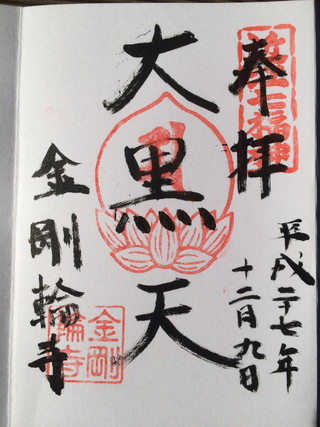 奉拝
平成二十七年
十二月九日
大黒天
金剛輪寺
金剛
輪寺